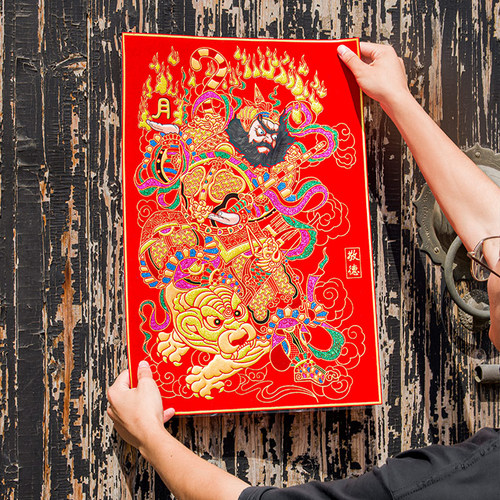 月
敬德